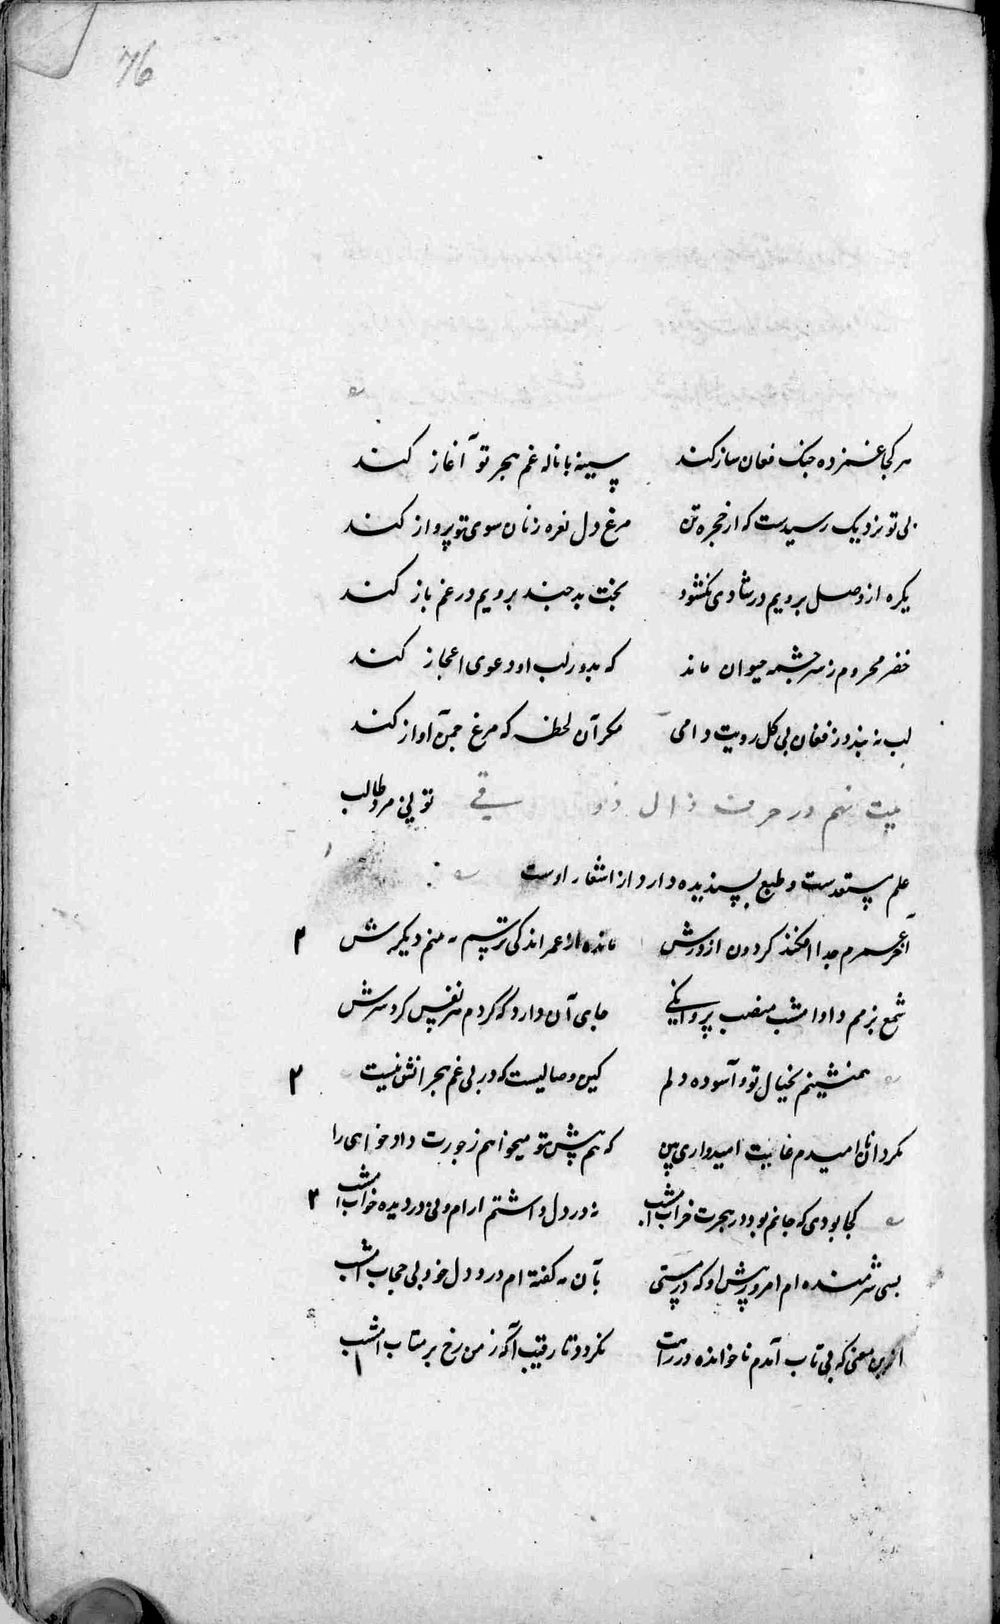 76
هر کجا غمزده جنک فغان ساز کند سینه با ناله غم هجر تو آغاز کند
بی تو نزدیک رسیدست که از حجره تن مرغ دل نعره زنان سوی تو پرواز کند
یکره از وصل برویم در شادی نکشود بخت بد چند برویم در غم باز کند
خضر محروم ز سرچشمه حیوان ماند که بدور لب او دعوی اعجاز کند
لب نه بندد ز فغان بی کل رویت دامی مکر آن لحظه که مرغ چمن آواز کند
بیت نهم در حرف ذال ذوقی تونی مرد طالب
علم مستعدست و طبع پسندیده دارد از اشعار اوست
آخر عمرم جدا افکند کردون از درش مانده از عمر اندکی ترسم نه بینم دیکرش ۲
شمع بزمم داد امشب منصب پروانکی جای آن دارد که گردم هر نفس کرد سرش
همنشینم بخیال تو و آسوده دلم کین وصالیست که در پی غم هجرانش نیست ۲
نکردان ناامیدم غایت امیدواری بین که هم پیش تو میخواهم ز جورت دادخواهی را
کجا بودی که جانم بود در هجرت خراب امشب نه در دل داشتم ارام و نی در دیده خواب امشب ۲
بسی شرمنده ام امروز پیش او که در مستی بآن مه کفته ام درد دل خود بی حجاب امشب
ازین معنی که بی تاب آمدم ناخوانده در راهت نکردد تا رقیب آکه ز من رخ بر متاب امشب